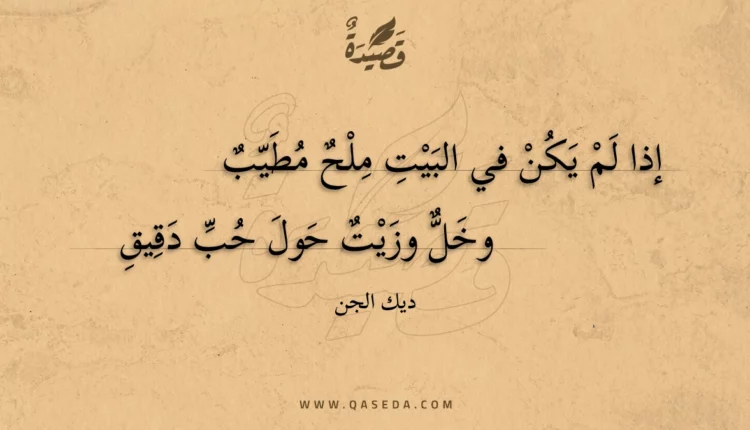 قَصِيدَةٌ
إذا لَمْ يَكُنْ في البَيْتِ مِلْحٌ مُطَيّبٌ
وخَلٌّ وزَيْتٌ حَولَ حُبِّ دَقِيقِ
ديك الجن
WWW.QASEDA.COM